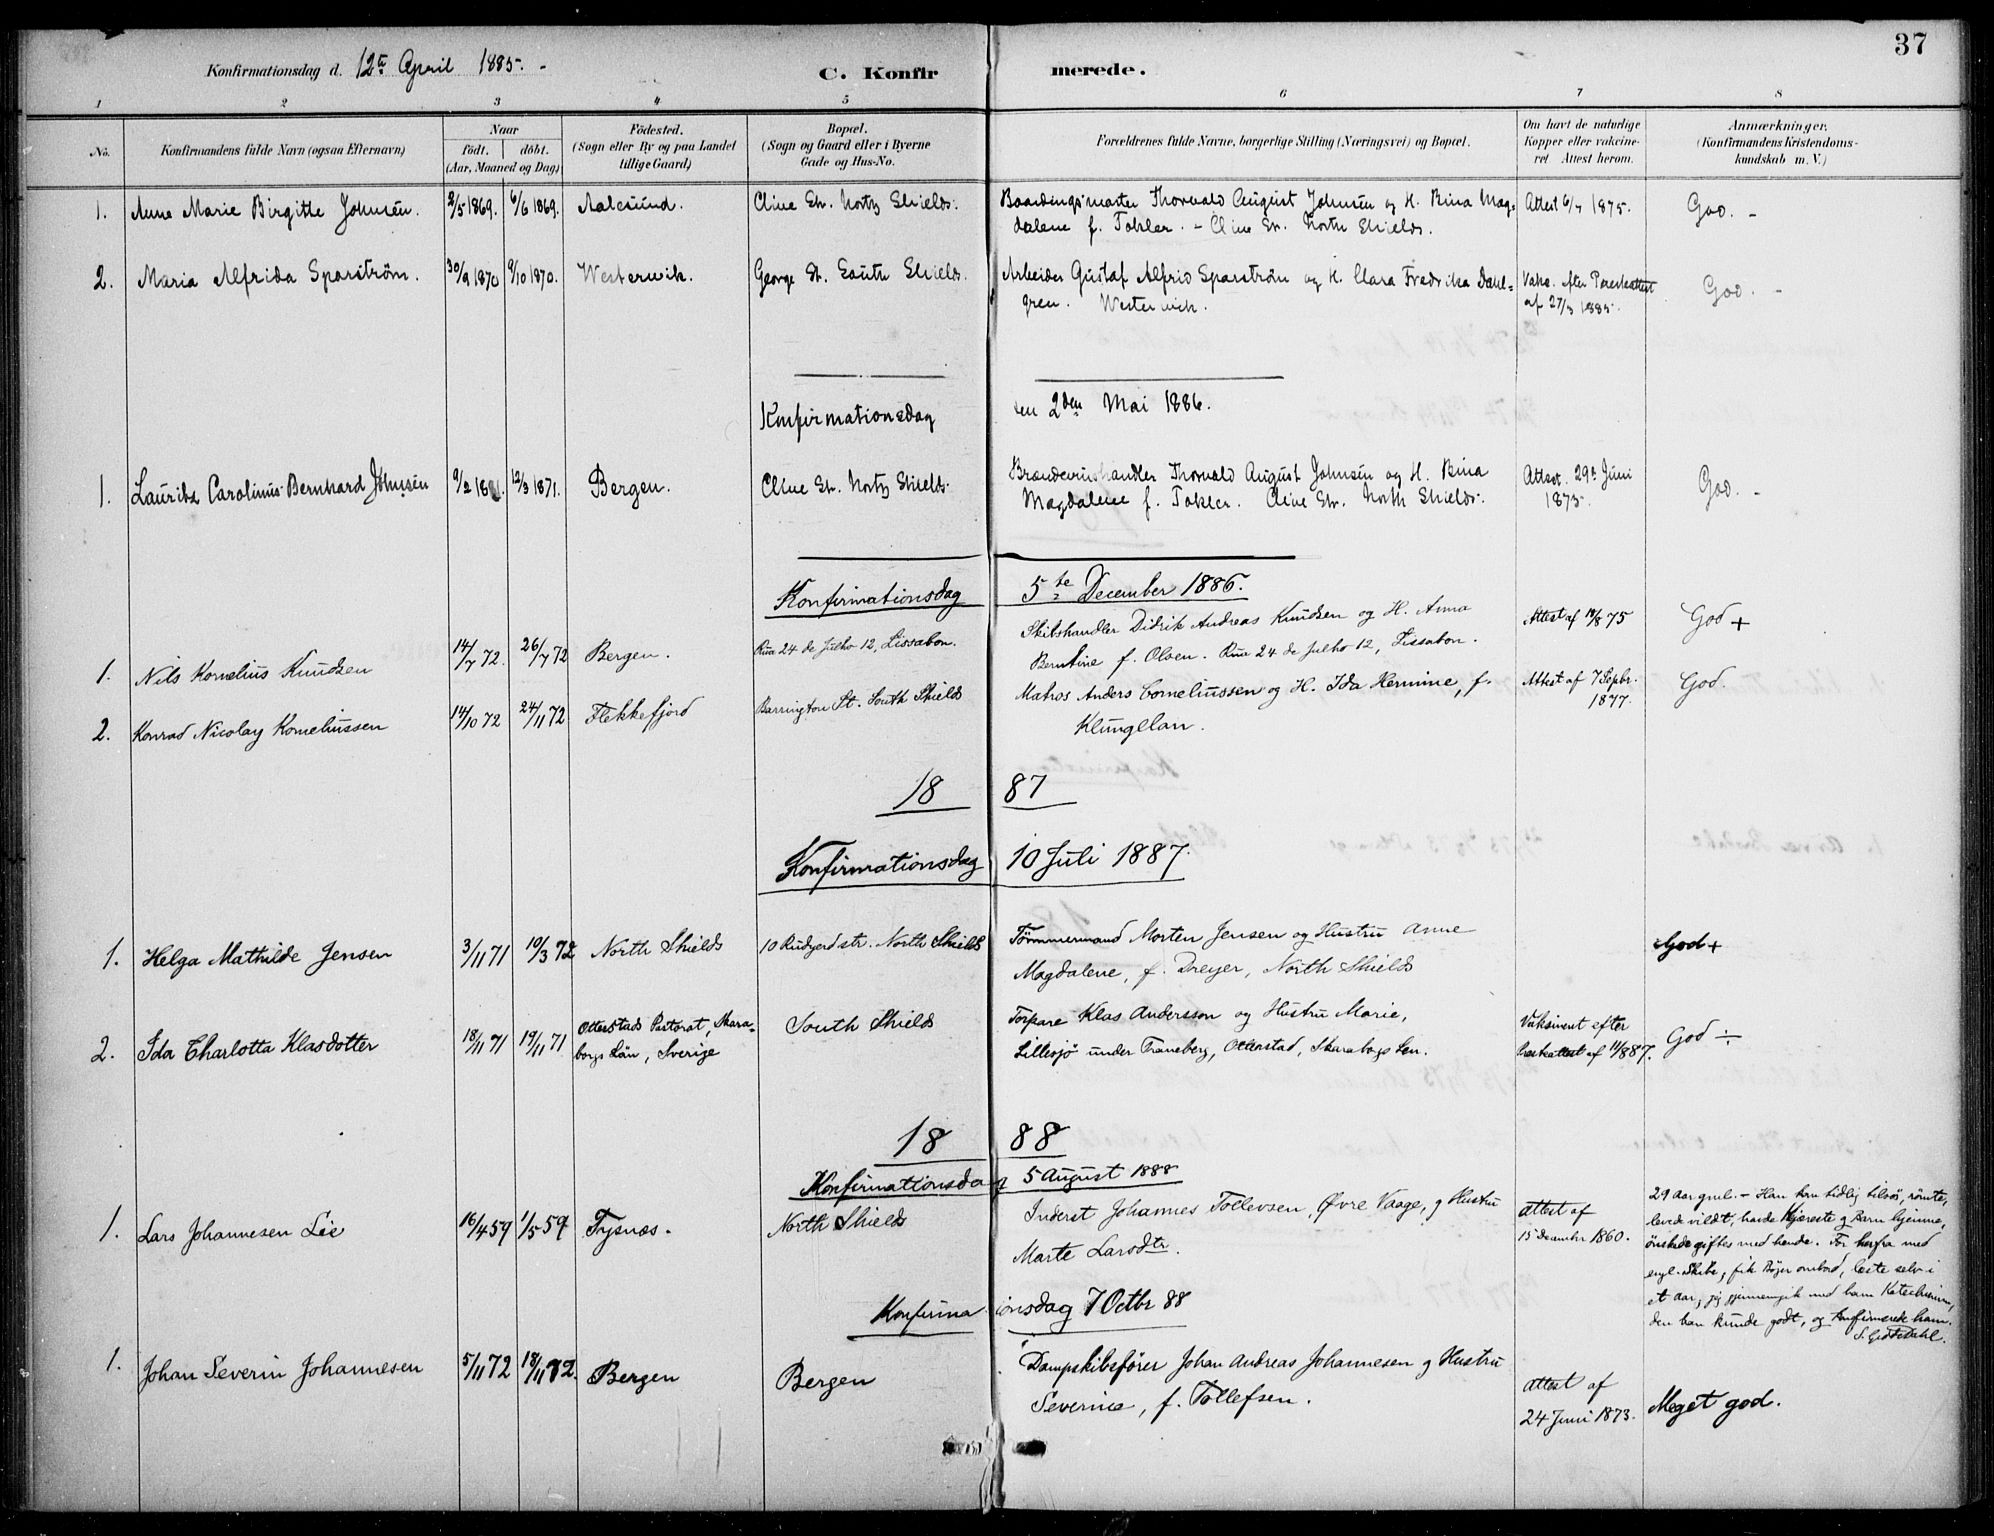 37
Konfirmationsdag d. 12te April 1885. -
C. Konfirmerede.
1 2 3 4 5 6 7 8
No.
Konfirmandens fulde Navn (ogsaa Efternavn)
Naar
födt. döbt.
(Aar, Maaned og Dag)
Födested.
(Sogn eller By og paa Landet
tillige Gaard)
Bopæl.
(Sogn og Gaard eller i Byerne
Gade og Hus-No.
Forældrenes fulde Navne, borgerlige Stilling (Næringsvei) og Bopæl.
Om havt de naturlige
Kopper eller vakcine-
ret. Attest herom.
Anmærkninger.
(Konfirmandens Kristendoms-
kundskab m. V.)
1. Anne Marie Birgitte Johnsen. 2/5 1869. 6/6 1869. Aalesund. Clive Str. North Shields. Boardingsmaster Thorvald August Johnsen og H. Bina Mag- Attest 6/7 1875. God. -
dalene f. Tokler. - Clive Str. North Shields.
2. Maria Alfrida Sparström. 30/9 1870 9/10 1870. Westerwik. George St. South Shields. Arbeider Gustaf Alfrid Sparström og H. Clara Fredrika Dahl- Vakc. efter Presteattest God. -
gren. Westerwik. af 27/3 1885.
Konfirmationsdag den 2den Mai 1886.
1. Lauritz Carolinus Bernhard Johnsen 9/2 1871. 12/3 1871. Bergen. Clive Str. North Shields. Brændevinshandler Thorvald August Johnsen og H. Bina Attest. 29de Juni God. -
Magdalene f. Tokler. Clive Str. North Shields. 1873.
Konfirmationsdag 5te December 1886.
1. Nils Kornelius Knudsen 14/7 72. 26/7 72 Bergen. Rua 24 de Julho 12, Lissabon. Skibshandler Didrik Andreas Knudsen og H. Anna Attest af 19/8 75 God +
Berntine f. Olsen. Rua 24 de Julho 12, Lissabon.
2. Konrad Nicolay Korneliussen 14/10 72 24/11 72 Flekkefjord Barrington St. South Shields Matros Anders Corneliussen og H. Ida Hermine, f. Attest af 7 Septbr. God.
Klungellan. 1877.
18 87
Konfirmationsdag 10 Juli 1887.
1. Helga Mathilde Jensen 3/11 71 10/3 72 North Shields 10 Rudyerd str. North Shields Tømmermand Morten Jensen og Hustru Anne God +
Magdalene, f. Dreyer, North Shields
2. Ida Charlotta Klasdotter 18/11 71 19/11 71 Otterstads Pastorat, Skara- South Shields Torpare Klas Andersson og Hustru Marie, Vaksinert efter God ÷
borgs Län, Sverige Lillesjö under Traneberg, Otterstad, Skaraborgs Len. Presteattest af 11/8 87.
18 88
Konfirmationsdag 5 August 1888
1. Lars Johannesen Lie 16/4 59 1/5 59 Tysnæs. North Shields Inderst Johannes Tollevsen, Øvre Vaage, og Hustru Attest af
Marte Larsdtr. 15 December 1860.
29 Aar gml. - Han kom tidlig tilsøs, rømte,
levede vildt, havde Kjæreste og Barn hjemme,
ønskede giftes med hende. For herfra med
engl. Skibe, fik Bøger ombord, læste selv i
et Aar, jeg gjennemgik med ham Katechismen,
den han kunde godt, og konfirmerede ham.
Konfirmationsdag 7 Octbr 88
1. Johan Severin Johannesen 5/11 72 18/11 72. Bergen Bergen Dampskibsfører Johan Andreas Johannesen og Hustru Attest af Meget god.
Severine, f. Tollefsen. 24 Juni 1873.